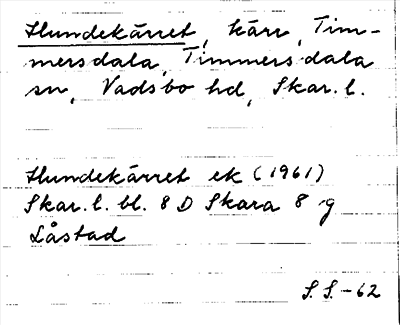 Hundekärret, kärr, Tim-
mersdala, Timmersdala
sn, Vadsbo hd, Skar. l.
Hundekärret ek (1961)
Skar. l. bl. 8 D Skara 8 g
Låstad
S. S. -62